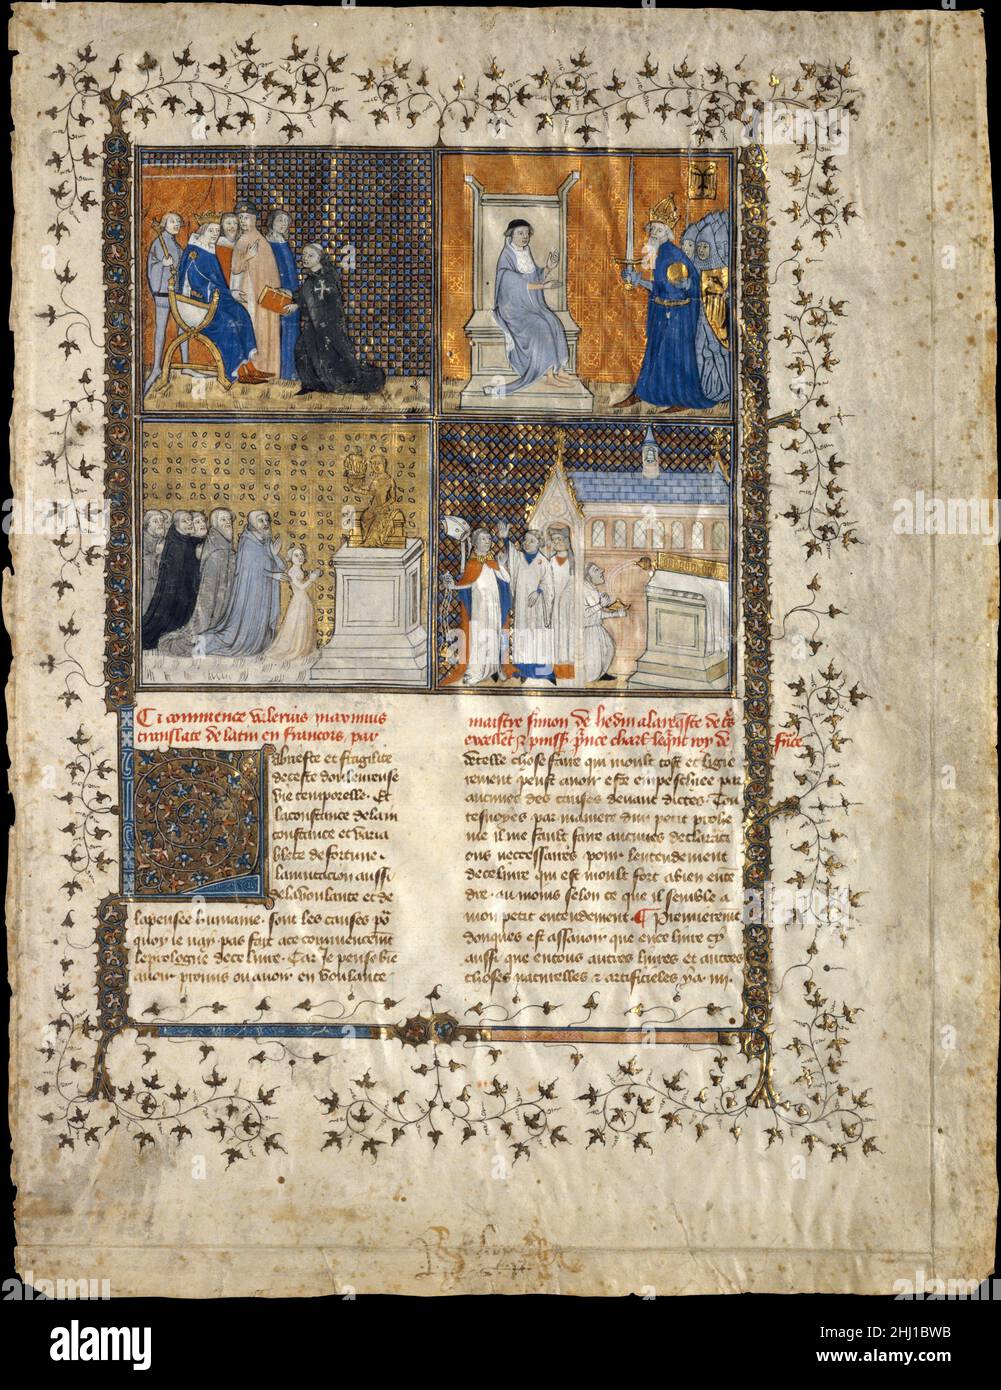 Ci commence Valerius maximus
translate de latin en francois, par
maistre simon de hesdin a la req̄ste de t̄s
excellent ⁊ puiss̄ p̄nce charl. le q̄int roy de fr̄nce
a briefte et fragilite
de ceste doulereuse
vie temporelle. Et
la constance de lain
constance et varia
blete de fortune.
la mutacion aussi
de la voulante et de
la pensee humaine. sont les causes p̄
quoy ie nay pas fait a ce commencem̄t
le prologue de ce livre. Car ie pense bie
avoir promis ou avoir en voulante
de telle chose faire qui moult tost et ligie
rement peust avoir este empeschiee par
aucunes des causes devant dictes. Tou
tesvoyes par maniere dun petit prohe
me il me fault faire aucunes declaraci
ons necessaires pour lentendement
de ce livre qui est moult fort a bien enten
dre. au moins selon ce que il semble a
mon petit entendement. Premierem̄t
donques est assavoir que en ce livre cy
aussi que en tous autres livres et autres
choses naturelles ⁊ artificieles y a iiii.
alamy
2HJ1BWB
www.alamy.com